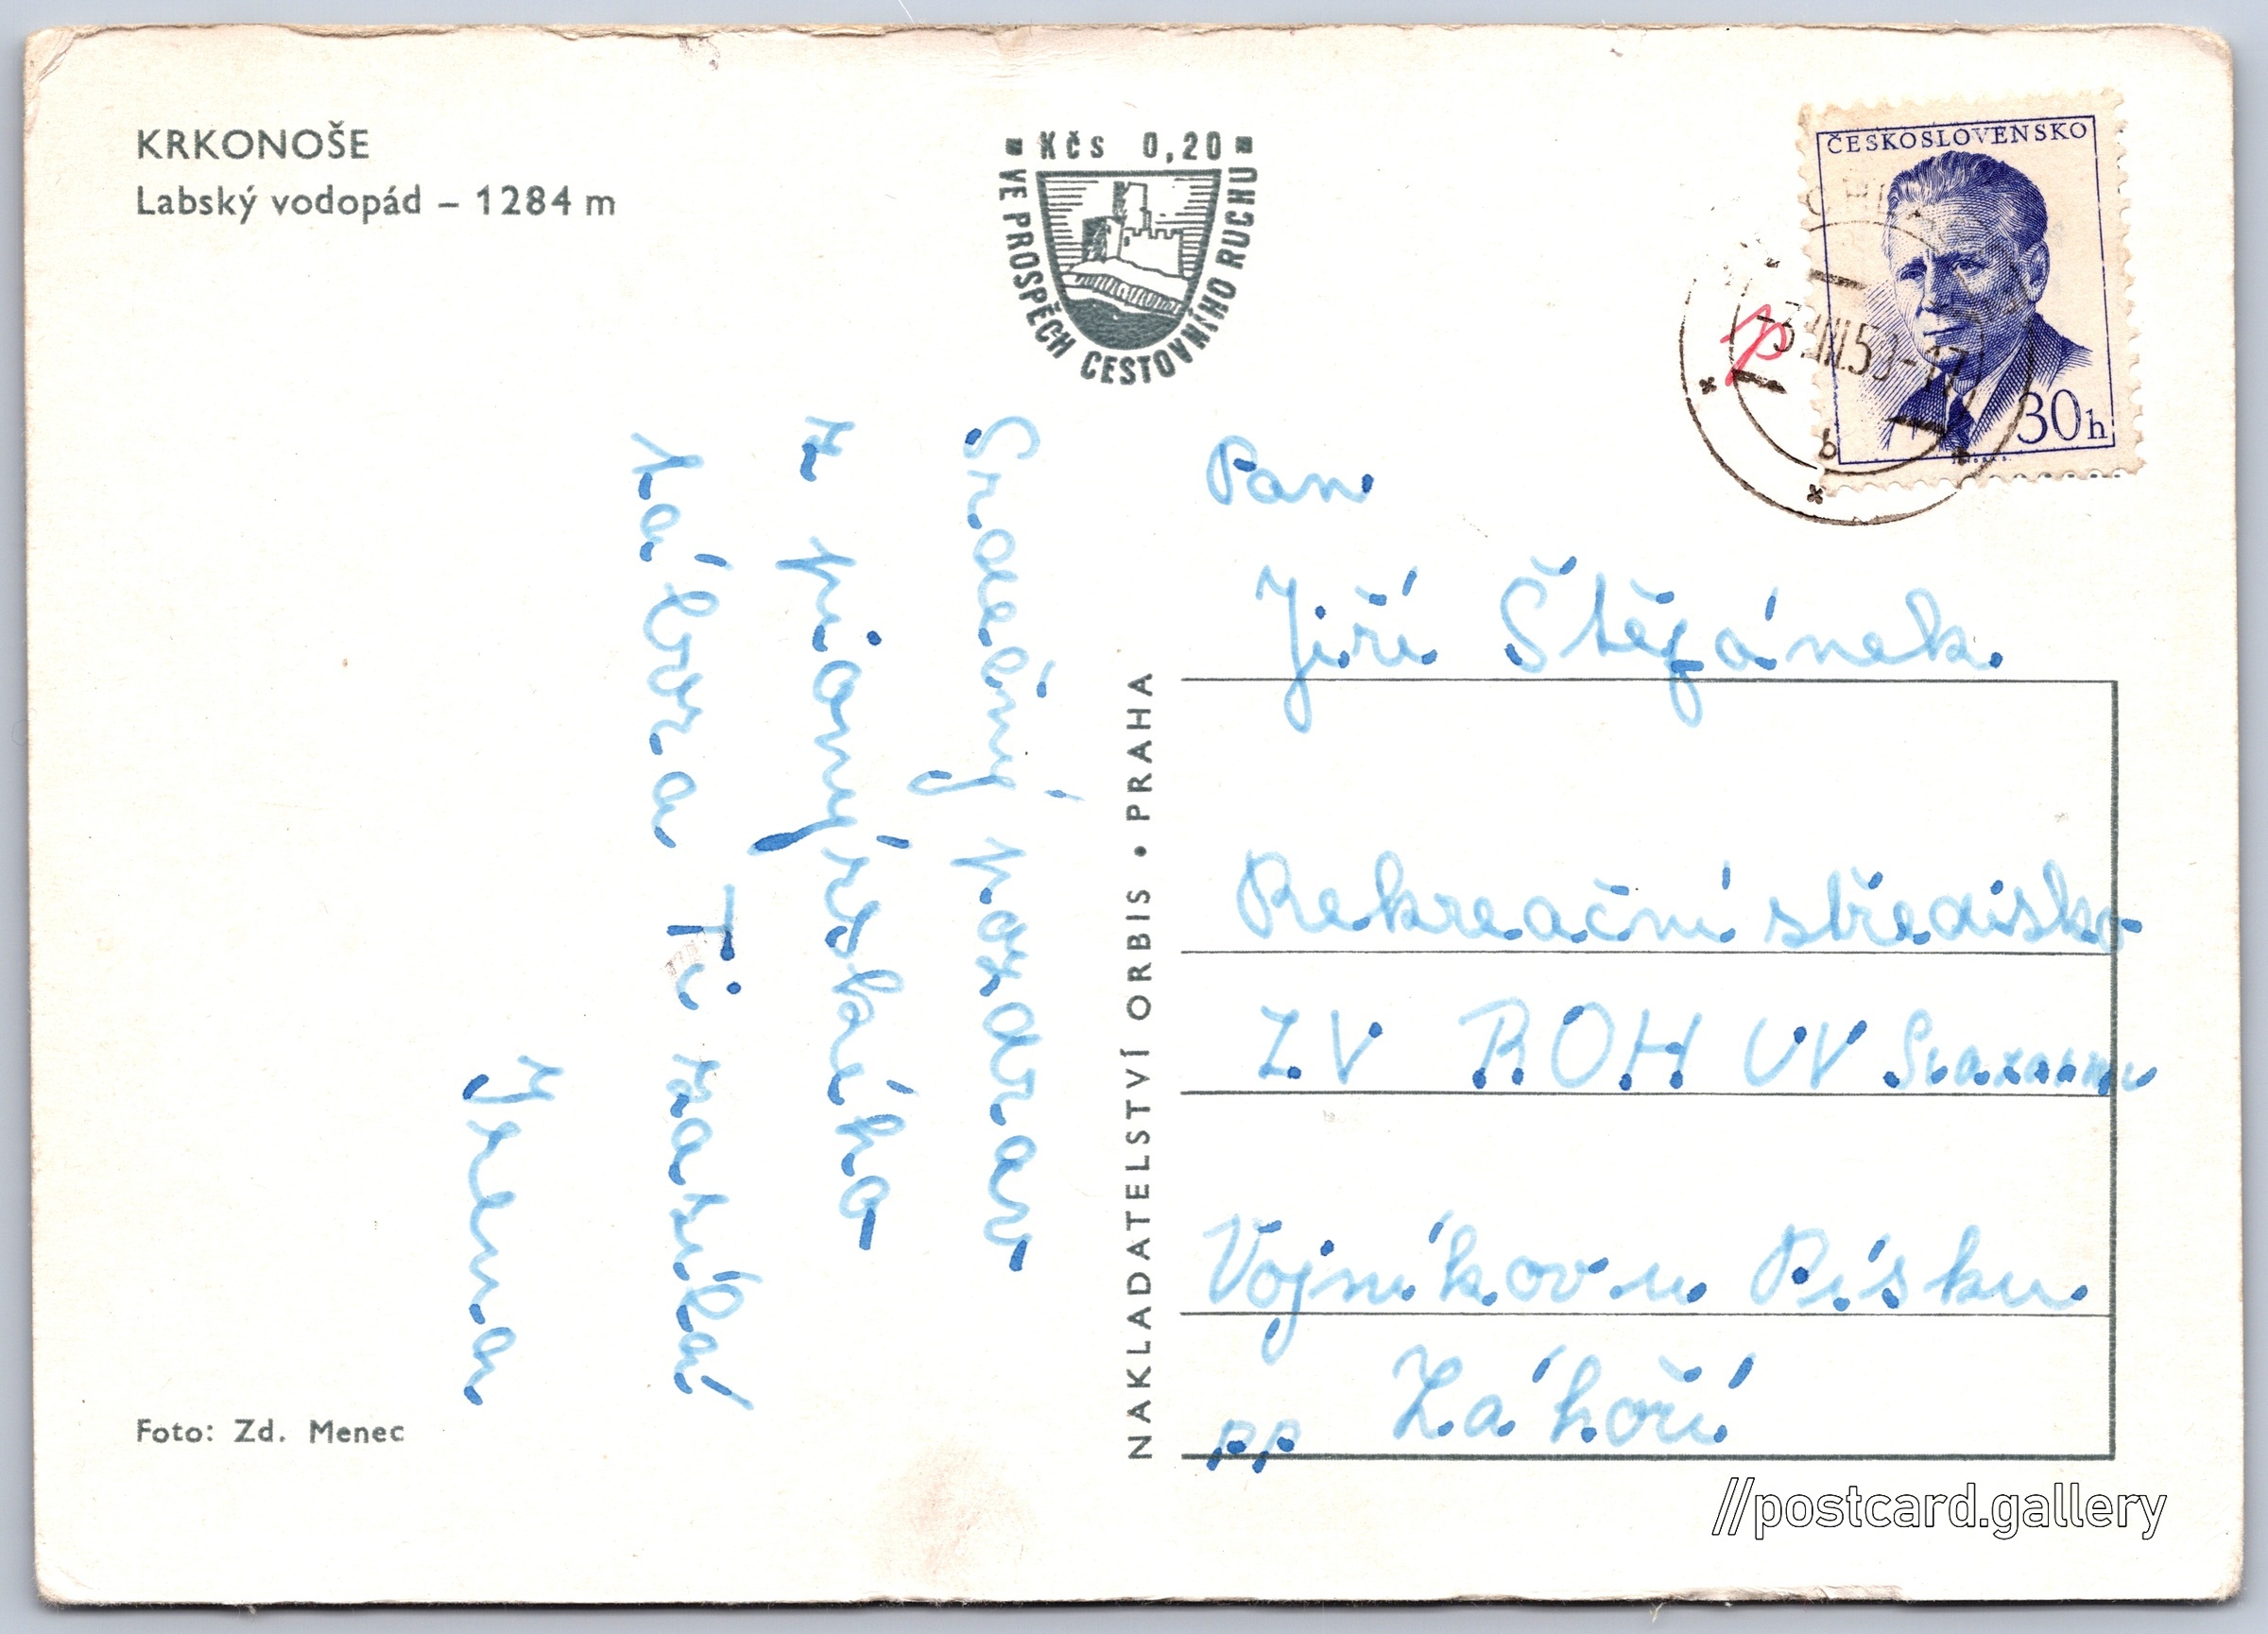 KRKONOŠE
Labský vodopád – 1284 m
Kčs 0,20
VE PROSPĚCH CESTOVNÍHO RUCHU
ČESKOSLOVENSKO
30h
b
Srdečný pozdrav
z pionýrského
tábora Ti zasílá
Irena
Foto: Zd. Menec
NAKLADATELSTVÍ ORBIS • PRAHA
Pan
Jiří Štěfánek
Rekreační středisko
ZV ROH ÚV
Vojníkov u Písku
pp Záhoří
//postcard.gallery